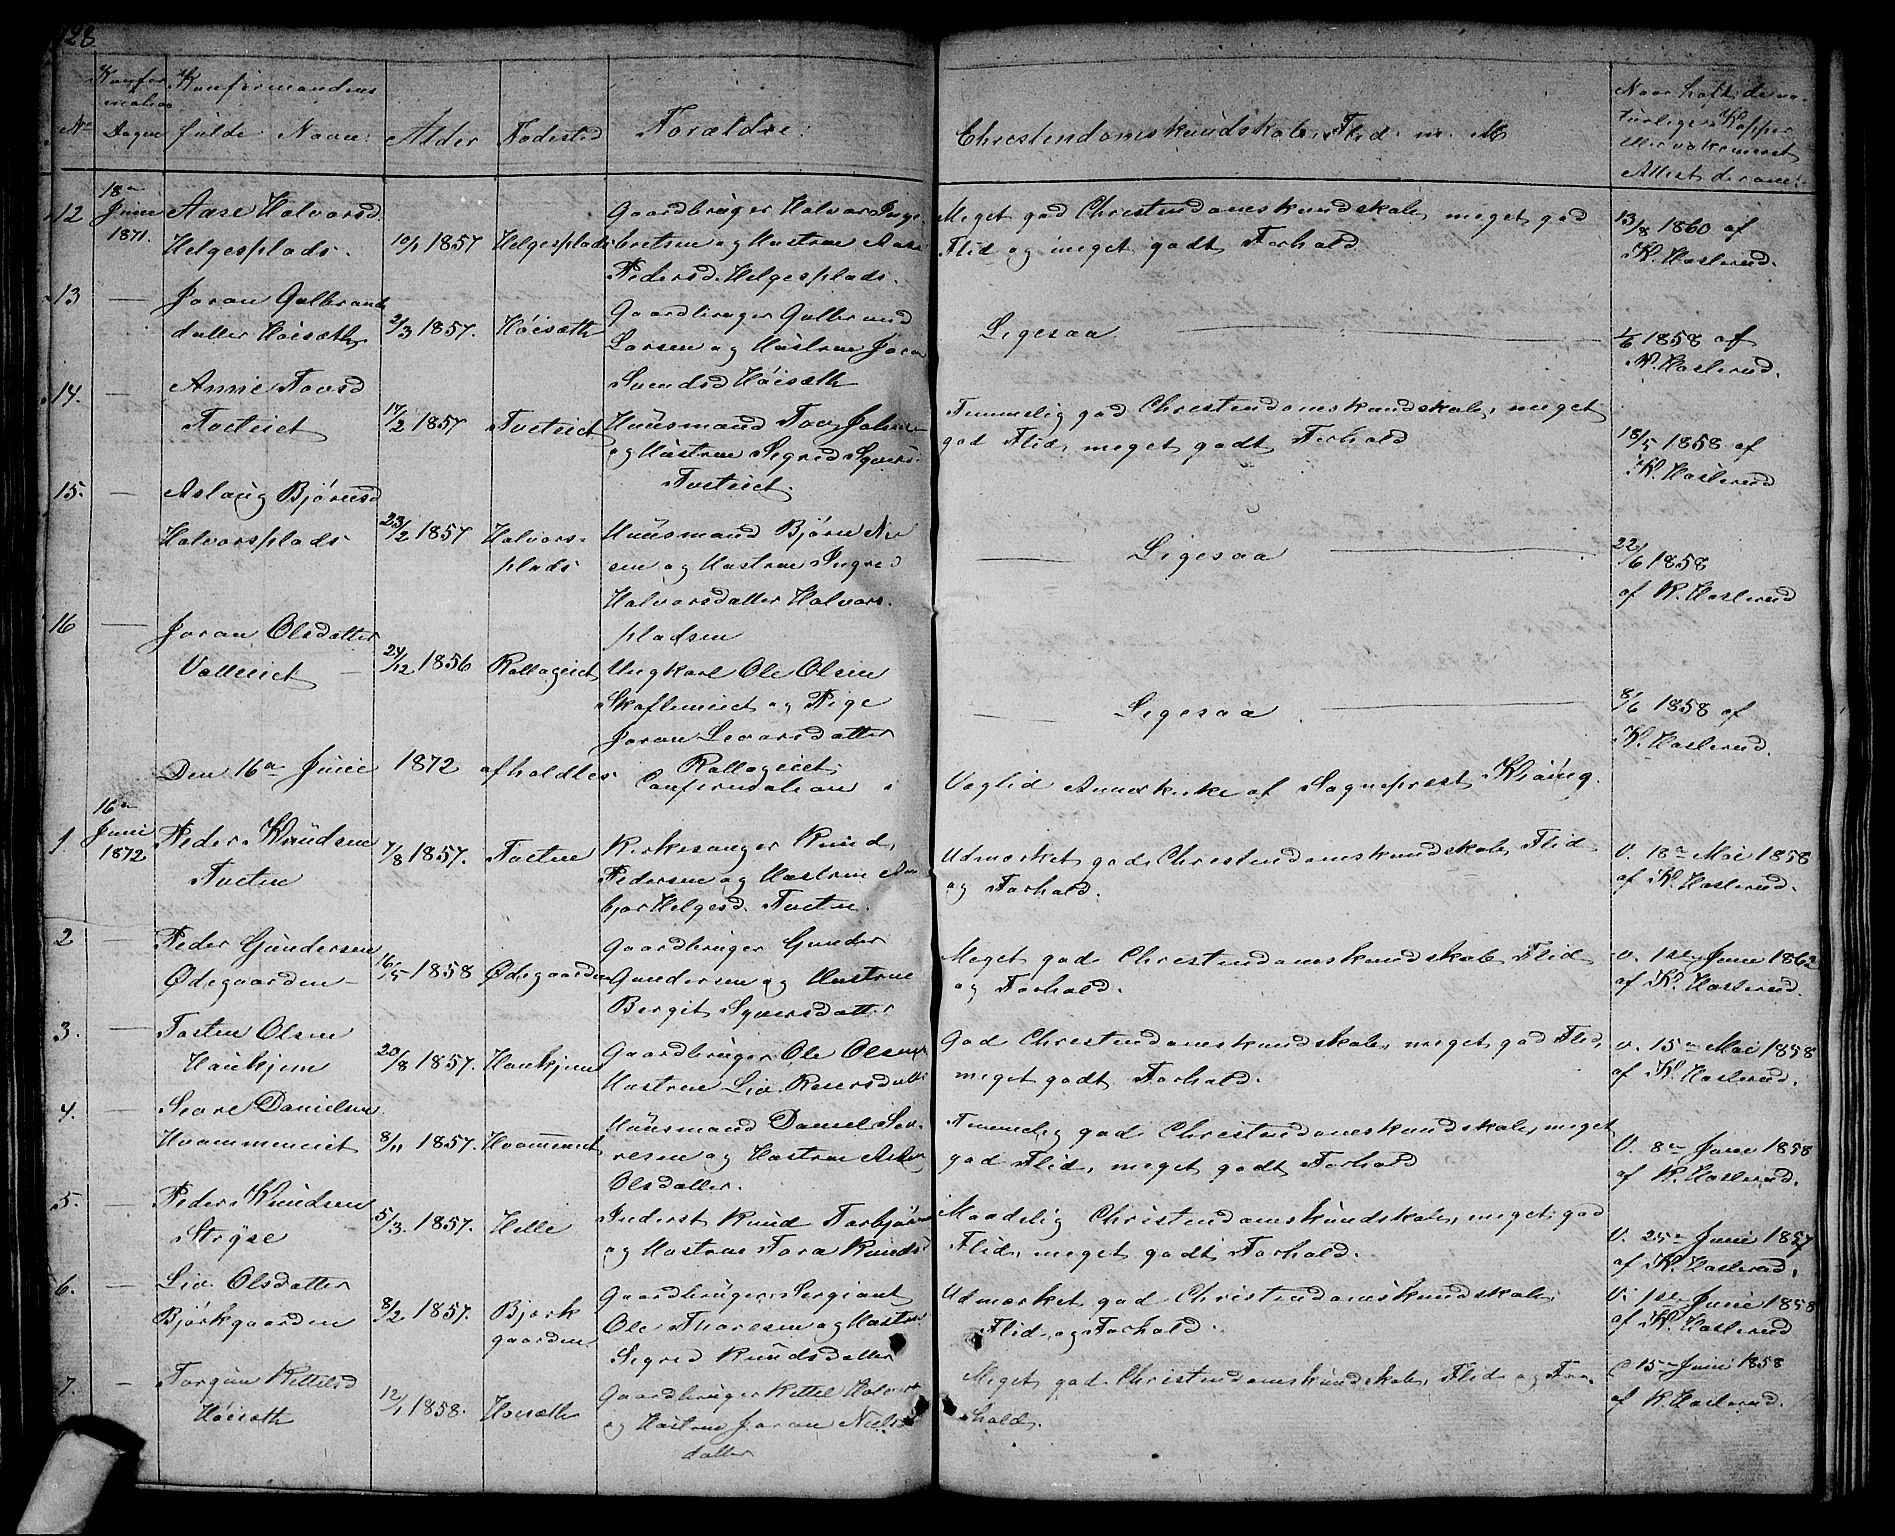 128
Konfir
mation
Dagen
No
Konfirmandens
fulde Navn:
Alder
Fødested
Forældre:
Christendomskundskab, Flid m. M
Naar havt de na-
turlige Kopper
eller vakcineret
Attest derom:
12
18de
Juni
1871.
Aase Halvorsd.
Helgesplads.
10/1 1857
Helgesplads
Gaardbruger Halvor Inge
bretsen og Hustrue Aase
Pedersd. Helgesplads.
Meget god Christendomskundskab, meget god
Flid og meget godt Forhold
13/8 1860 af
K. Haslerud.
13
—
Joran Gulbrands
datter Høisæth
2/3 1857.
Høisæth
Gaardbruger Gulbrand
Larsen og Hustrue Joran
Svendsd Høisæth
Ligesaa
1/6 1858 af
K. Haslerud.
14.
—
Annie Tovsd
Tveteiet
17/2 1857
Tveteiet
Huusmand Tov Johns
og Hustrue Sigred Syvers.
Tveteiet.
Temmelig god Christendomskundskab, meget
god Flid, meget godt Forhold
18/5 1858 af
K. Haslerud
15.
—
Aslaug Bjørnsd
Halvorsplads
23/2 1857
Halvors-
plads
Huusmand Bjørn
sen og Hustrue Ingred
Halvorsdatter Halvors.
pladsen
Ligesaa
22/6 1858
af K. Haslerud
16
—
Joran Olsdatter
24/12 1856
Rallageiet
Ungkarl Ole Olsen
og Pige
Joran Levorsdatter
Rallageiet
Ligesaa
8/6 1858 af
K. Haslerud.
Den 16de Junie 1872 afholdtes Confirmation i
Veglid Annexkirke af Sognepræst
1
16de
Juni
1872
Peder Knudsen
Tveten
7/8 1857.
Tveten
Kirkesanger Knud
Pedersen og Hustrue An
bjør Helgesd. Tveten.
Udmærket god Christendomskundskab, Flid
og Forhold.
V. 18de Mai 1858
af K. Haslerud.
2
—
Peder Gundersen
Ødegaarden
16/5 1858
Ødegaarden
Gaardbruger Gunder
Gundersen og Hustrue
Bergit Syversdatter
Meget god Christendomskundskab Flid
og Forhold.
V. 1ste Junie 1862
af K. Haslerud.
3.
—
Tosten Olsen
Haukjem
20/8 1857.
Haukjem
Gaardbruger Ole Olsen og
Hustrue Liv Roersdatter
God Christendomskundskab, meget god Flid,
meget godt Forhold.
V. 15de Mai 1858
af K. Haslerud.
4.
—
Sevre Danielsen
Hvammeneiet
8/11 1857.
Huusmand Daniel Sev-
resen og Hustrue
Olsdatter.
Temmelig god Christendomskundskab, meget
god Flid, meget godt Forhold
V. 8de Junie 1858
af K. Haslerud.
5.
—
Peder Knudsen
Strøse
5/3. 1857.
Helle
Inderst Knud Torbjørn
og Hustrue Tora Knuds
Maadelig Christendomskundskab, meget god
Flid, meget godt Forhold.
V. 25de Junie 1857
af K. Haslerud.
6.
—
Liv Olsdatter
Bjørkgaarden
8/2 1857.
Bjørk
gaarden
Gaardbruger Sergiant
Ole Thoresen og Hustrue
Sigred Knudsdatter
Udmærket god Christendomskundskab,
Flid og Forhold.
V. 1ste Junie 1858
af K. Haslerud
7.
—
Torgun Kittelsd
Høisæth
12/1 1858.
Høisæth
Gaardbruger Kittel Halvors
og Hustrue Joran Niels
datter
Meget god Christendomskundskab, Flid og For-
hold.
15de Juni 1858
af K. Haslerud.